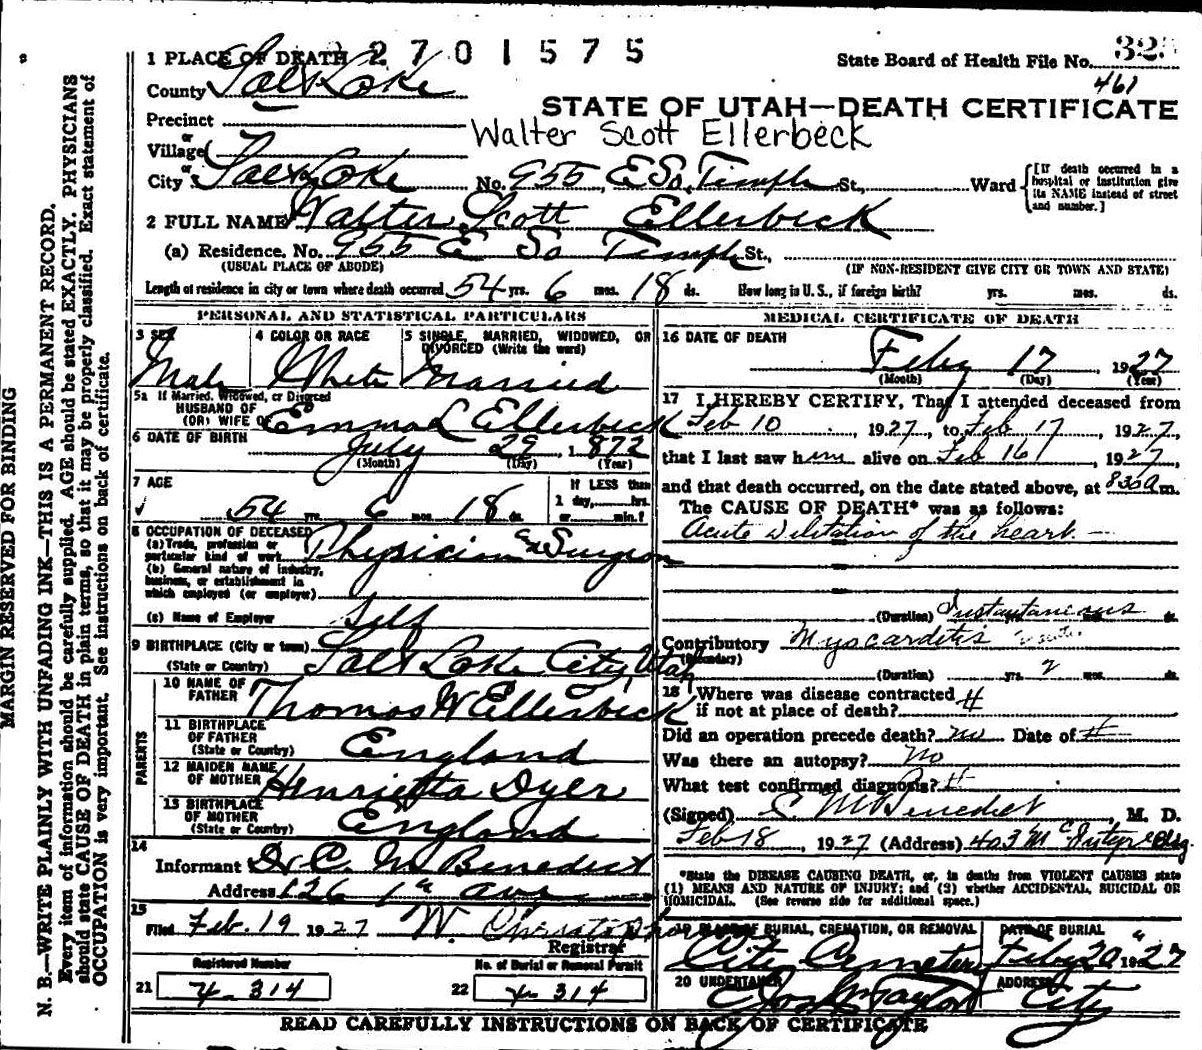 MARGIN RESERVED FOR BINDING
N. B.—WRITE PLAINLY WITH UNFADING INK—THIS IS A PERMANENT RECORD.
Every item of information should be carefully supplied. AGE should be stated EXACTLY. PHYSICIANS
should state CAUSE OF DEATH in plain terms, so that it may be properly classified. Exact statement of
OCCUPATION is very important. See instructions on back of certificate.
2701575
State Board of Health File No. 325
461
1 PLACE OF DEATH
County Salt Lake
STATE OF UTAH—DEATH CERTIFICATE
Precinct
or
Village
or
Walter Scott Ellerbeck
City Salt Lake No. 955 E So. Temple St., Ward
[If death occurred in a hospital or institution give its NAME instead of street and number.]
2 FULL NAME Walter Scott Ellerbeck
(a) Residence. No. 955 E So Temple St.,
(USUAL PLACE OF ABODE) (IF NON-RESIDENT GIVE CITY OR TOWN AND STATE)
Length of residence in city or town where death occurred 54 yrs. 6 mos. 18 ds. How long in U. S., if foreign birth? yrs. mos. ds.
PERSONAL AND STATISTICAL PARTICULARS
3 SEX Male
4 COLOR OR RACE White
5 SINGLE, MARRIED, WIDOWED, OR DIVORCED (Write the word) Married
5a If Married, Widowed, or Divorced
HUSBAND OF
(OR) WIFE OF Emma L Ellerbeck
6 DATE OF BIRTH July 29 1872
(Month) (Day) (Year)
7 AGE 54 yrs. 6 mos. 18 ds.
If LESS than
1 day, hrs.
or min.?
8 OCCUPATION OF DECEASED
(a) Trade, profession or
particular kind of work Physician & Surgeon
(b) General nature of industry,
business, or establishment in
which employed (or employer)
(c) Name of Employer Self
9 BIRTHPLACE (City or town)
(State or Country) Salt Lake City, Utah
PARENTS
10 NAME OF FATHER Thomas W Ellerbeck
11 BIRTHPLACE OF FATHER
(State or Country) England
12 MAIDEN NAME OF MOTHER Henrietta Dyer
13 BIRTHPLACE OF MOTHER
(State or Country) England
14
Informant Dr C. M Benedict
Address 126 1st ave
15
Filed Feb. 19 1927 W.
Registrar
Registered Number No. of Burial or Removal Permit
21 4-314 22 4-314
MEDICAL CERTIFICATE OF DEATH
16 DATE OF DEATH
Feby 17 1927
(Month) (Day) (Year)
17 I HEREBY CERTIFY, That I attended deceased from
Feb 10, 1927, to Feb 17, 1927,
that I last saw him alive on Feb 16, 1927,
and that death occurred, on the date stated above, at 830 a m.
The CAUSE OF DEATH* was as follows:
Acute Dilitation of the heart —
(Duration) Instantaneous ds.
Contributory Myocarditis
(Secondary)
(Duration) yrs. 2 mos. ds.
18 Where was disease contracted
if not at place of death?
Did an operation precede death? no Date of
Was there an autopsy? No
What test confirmed diagnosis?
(Signed) C. M Benedict, M. D.
Feb 18, 1927 (Address) 403 McIntyre Bldg
*State the DISEASE CAUSING DEATH, or, in deaths from VIOLENT CAUSES state
(1) MEANS AND NATURE OF INJURY; and (2) whether ACCIDENTAL, SUICIDAL OR
HOMICIDAL. (See reverse side for additional space.)
19 PLACE OF BURIAL, CREMATION, OR REMOVAL DATE OF BURIAL
City Cemetery Feby 20" 1927
20 UNDERTAKER ADDRESS
Jos Wm Taylor City
READ CAREFULLY INSTRUCTIONS ON BACK OF CERTIFICATE